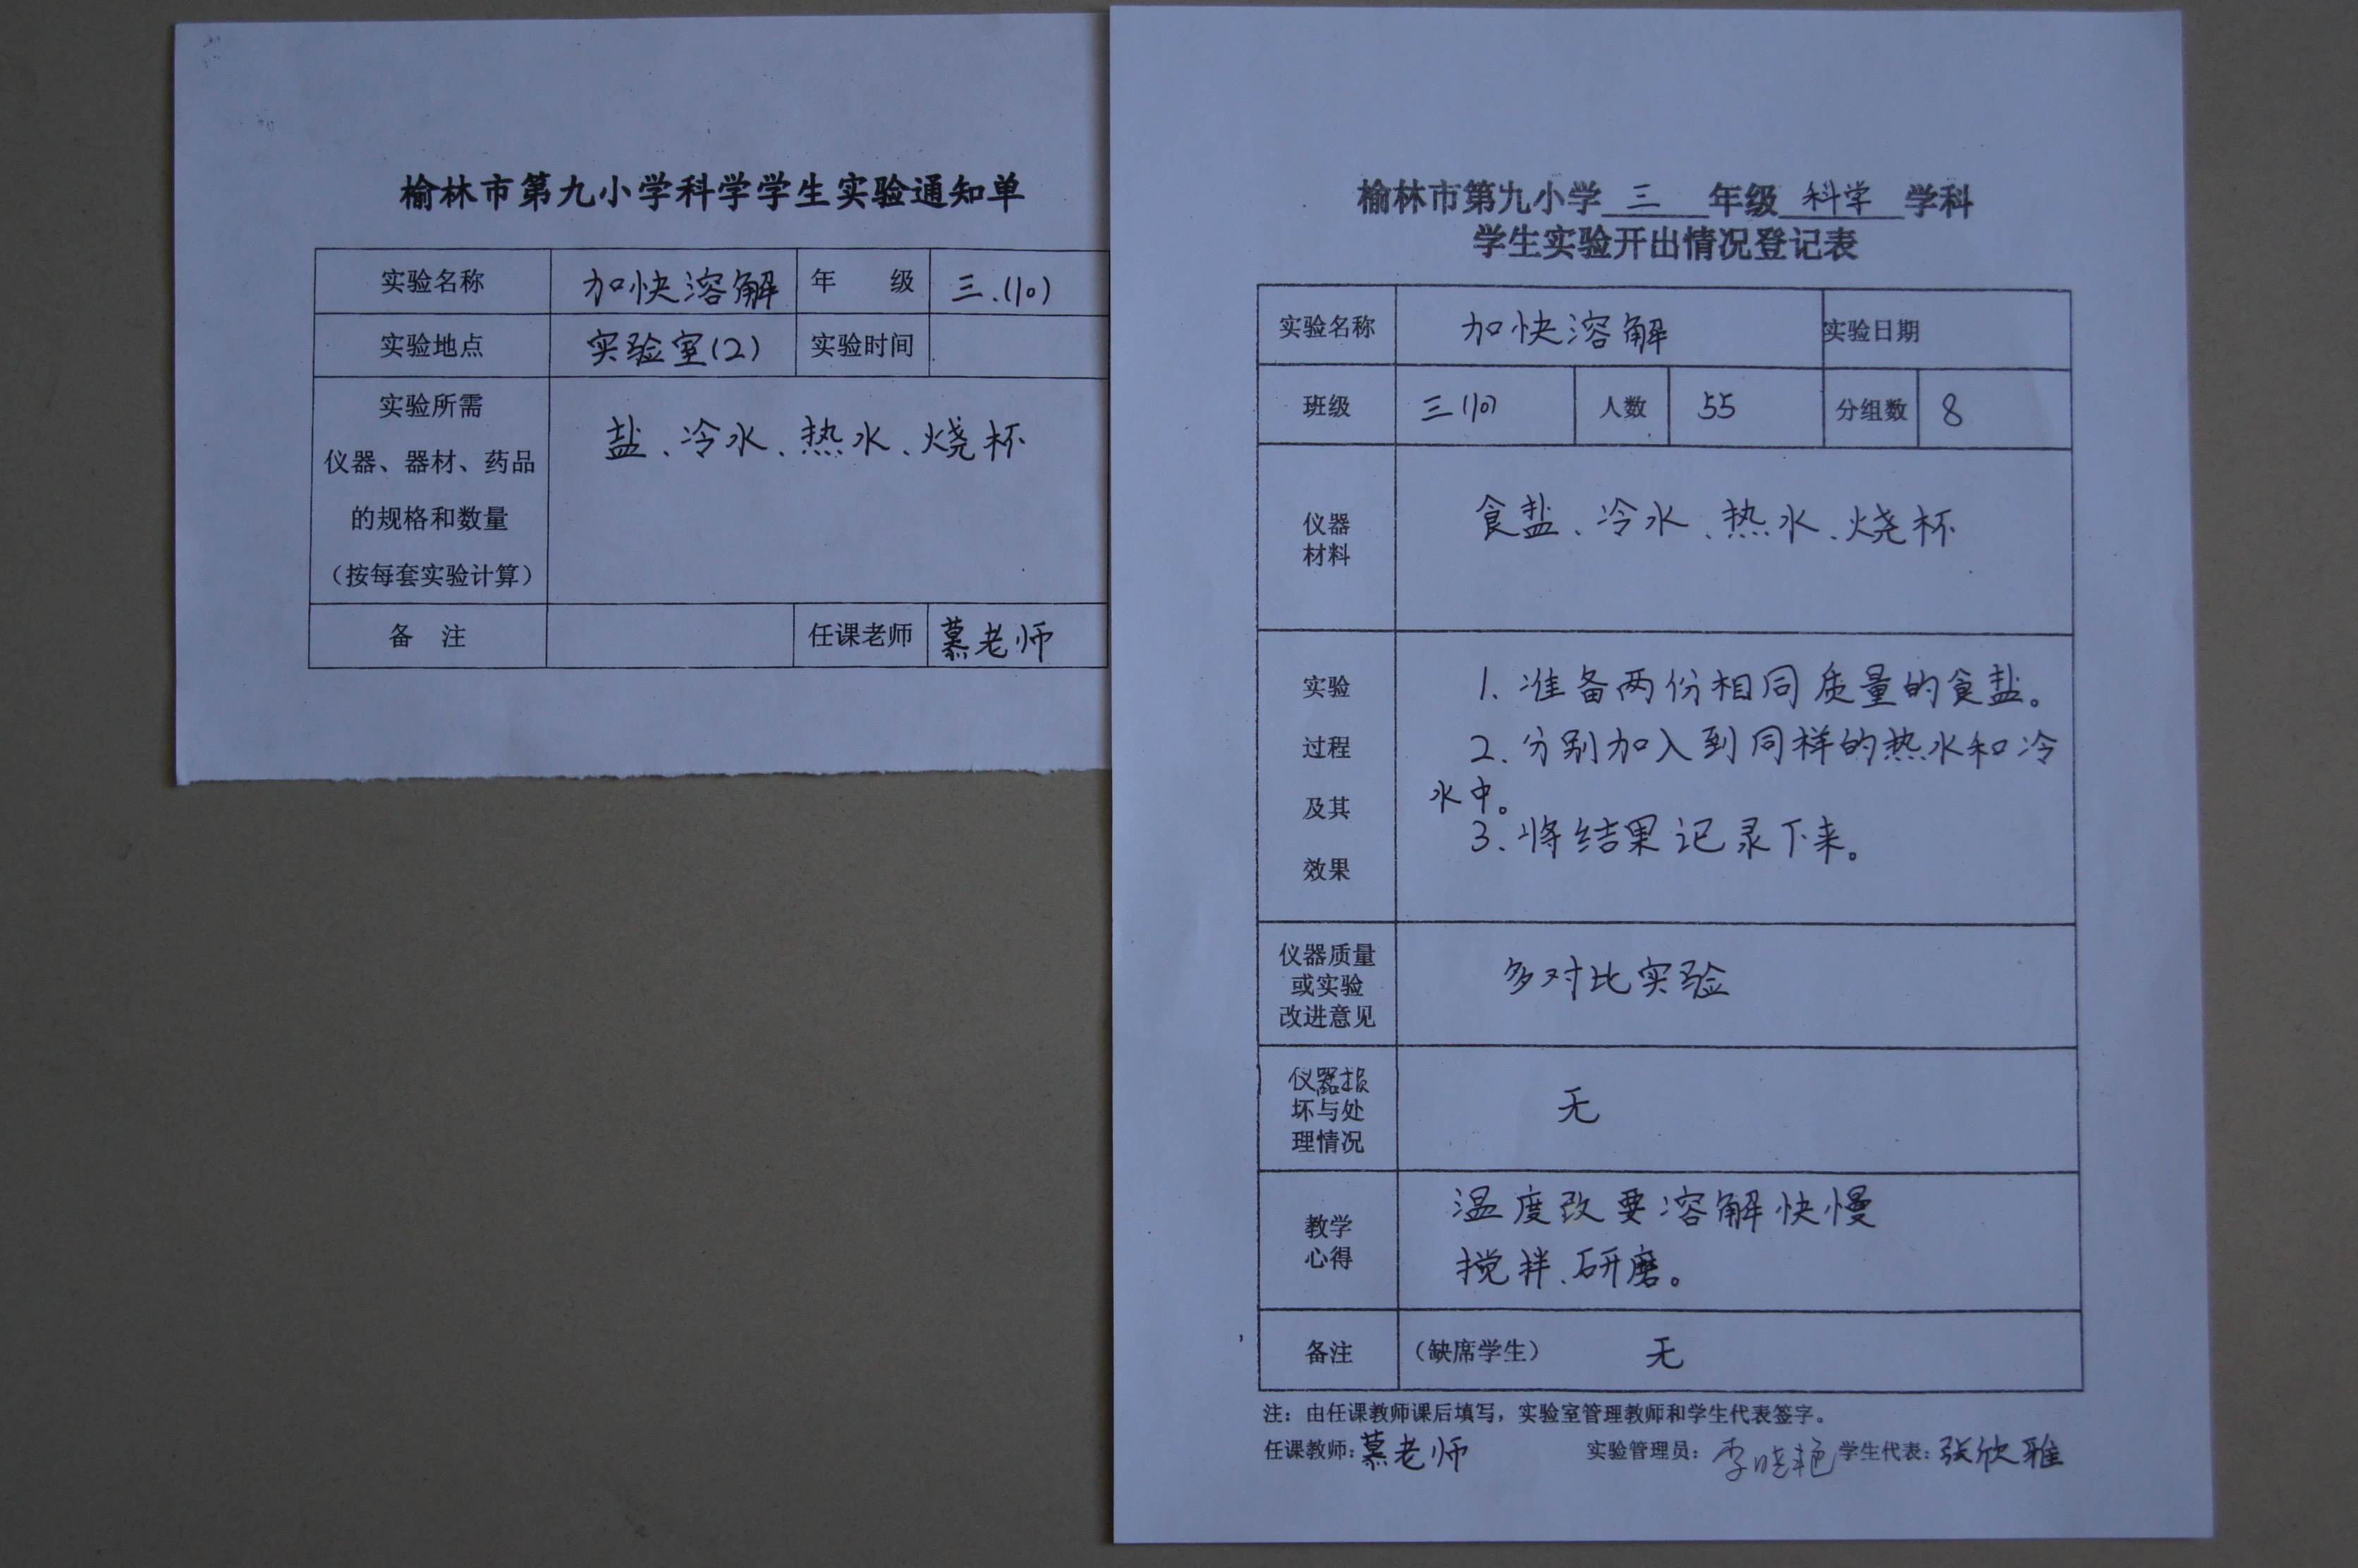 榆林市第九小学科学学生实验通知单
实验名称 加快溶解 年 级 三.(10)
实验地点 实验室(2) 实验时间
实验所需
仪器、器材、药品
的规格和数量
(按每套实验计算)
盐、冷水、热水、烧杯
备 注 任课老师 慕老师
榆林市第九小学 三 年级 科学 学科
学生实验开出情况登记表
实验名称 加快溶解 实验日期
班级 三(10) 人数 55 分组数 8
仪器
材料
食盐、冷水、热水、烧杯
实验
过程
及其
效果
1. 准备两份相同质量的食盐。
2. 分别加入到同样的热水和冷
水中。
3. 将结果记录下来。
仪器质量
或实验
改进意见
多对比实验
仪器损
坏与处
理情况
无
教学
心得
温度改要溶解快慢
搅拌、研磨。
备注 (缺席学生) 无
注:由任课教师课后填写,实验室管理教师和学生代表签字。
任课教师:慕老师 实验管理员:李晓艳 学生代表:张欣雅